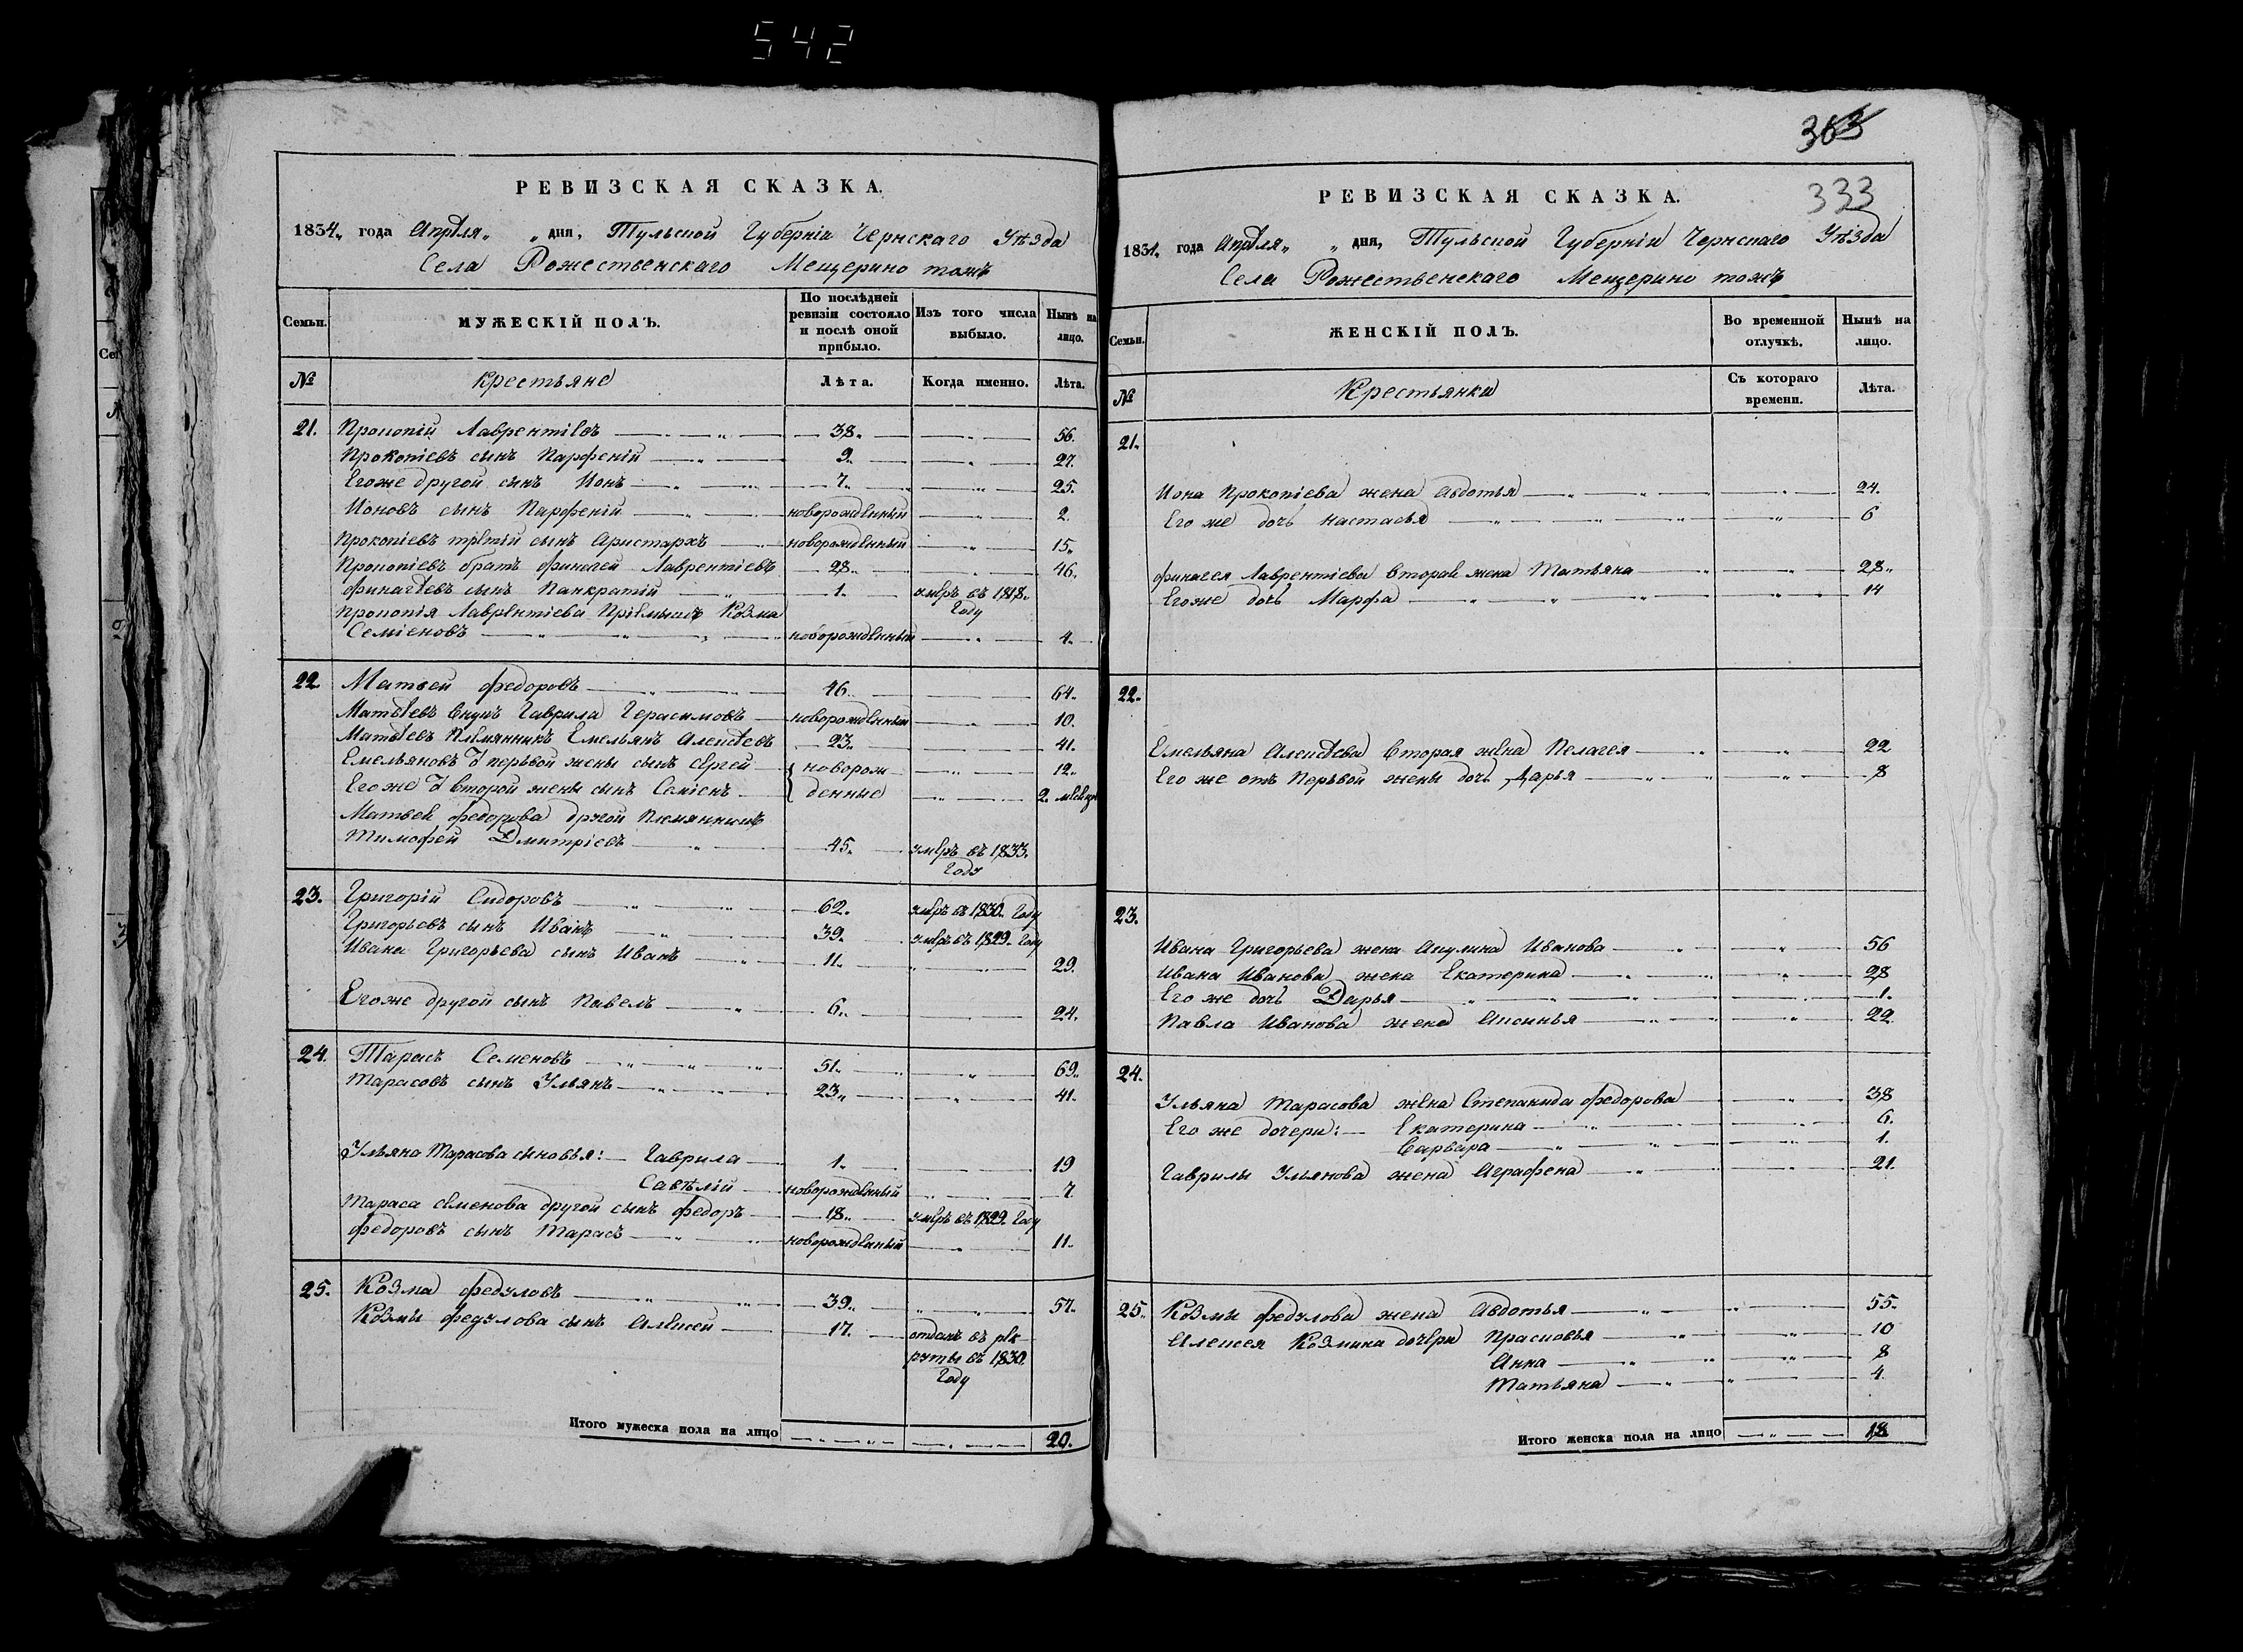 542
РЕВИЗСКАЯ СКАЗКА.
1834 года Апрѣля „ „ дня, Тульской Губерніи Чернскаго Уѣзда
Села Рожественскаго Мещерино тожъ
Семьи. МУЖЕСКІЙ ПОЛЪ. По послѣдней ревизіи состояло и послѣ оной прибыло. Изъ того числа выбыло. Нынѣ на лицо.
№ Крестьяне Лѣта. Когда именно. Лѣта.
21. Прокопій Лаврентіевъ 38. 56.
Прокопіевъ сынъ Парфеній 9. 27.
Егоже другой сынъ Іонъ 7. 25.
Іоновъ сынъ Парфеній новорожденный 2.
Прокопіевъ третій сынъ Аристархъ новорожденный 15.
Прокопіевъ братъ Финогей Лаврентіевъ 28. 46.
Финагѣевъ сынъ Панкратій 1. умеръ въ 1818. Году
Прокопія Лаврентіева Пріемышъ Козма
Семіоновъ новорожденный 4.
22. Матвей Федоровъ 46. 64.
Матвѣевъ внукъ Гаврила Герасимовъ новорожденный 10.
Матвѣевъ Племянникъ Емельянъ Алексѣевъ 23. 41.
Емельяновъ Ѿ первой жены сынъ Сергей новорож- 12.
Егоже Ѿ второй жены сынъ Семіонъ денные 2. месяца
Матвея Федорова другой Племянникъ
Тимофей Дмитріевъ 45. умеръ въ 1833. Году
23. Григорій Сидоровъ 62. умеръ въ 1830. Году
Григорьевъ сынъ Иванъ 39. умеръ въ 1829. Году
Ивана Григорьева сынъ Иванъ 11. 29.
Егоже другой сынъ Павелъ 6. 24.
24. Тарасъ Семеновъ 51. 69.
Тарасовъ сынъ Ульянъ 23. 41.
Ульяна Тарасова сыновья: Гаврила 1. 19
Савѣлій новорожденный 7.
Тараса Семенова другой сынъ Федоръ 18. умеръ въ 1829. Году
Федоровъ сынъ Тарасъ новорожденный 11.
25. Козма Федуловъ 39. 57.
Козмы Федулова сынъ Алексей 17. отданъ въ рек-
руты въ 1830.
Году
Итого мужеска пола на лицо 20.
333
РЕВИЗСКАЯ СКАЗКА.
1834 года Апрѣля „ „ дня, Тульской Губерніи Чернскаго Уѣзда
Села Рожественскаго Мещерино тожъ
Семьи. ЖЕНСКІЙ ПОЛЪ. Во временной отлучкѣ. Нынѣ на лицо.
№ Крестьянки Съ котораго времени. Лѣта.
21.
Іона Прокопіева жена Авдотья 24.
Его же дочь Настасья 6
Финагея Лаврентіева вторая жена Татьяна 28.
Егоже дочь Марфа 14
22.
Емельяна Алексѣева вторая жена Пелагея 22
Его же отъ Первой жены дочь Дарья 8
23.
Ивана Григорьева жена Акулина Иванова 56
Ивана Иванова жена Екатерина 28
Его же дочь Дарья 1.
Павла Иванова жена Аксинья 22
24.
Ульяна Тарасова жена Степанида Федорова 38
Его же дочери: Екатерина 6.
Варвара 1.
Гаврилы Ульянова жена Аграфена 21.
25. Козмы Федулова жена Авдотья 55.
Алексея Козмина дочери Прасковья 10
Анна 8
Татьяна 4.
Итого женска пола на лицо 18